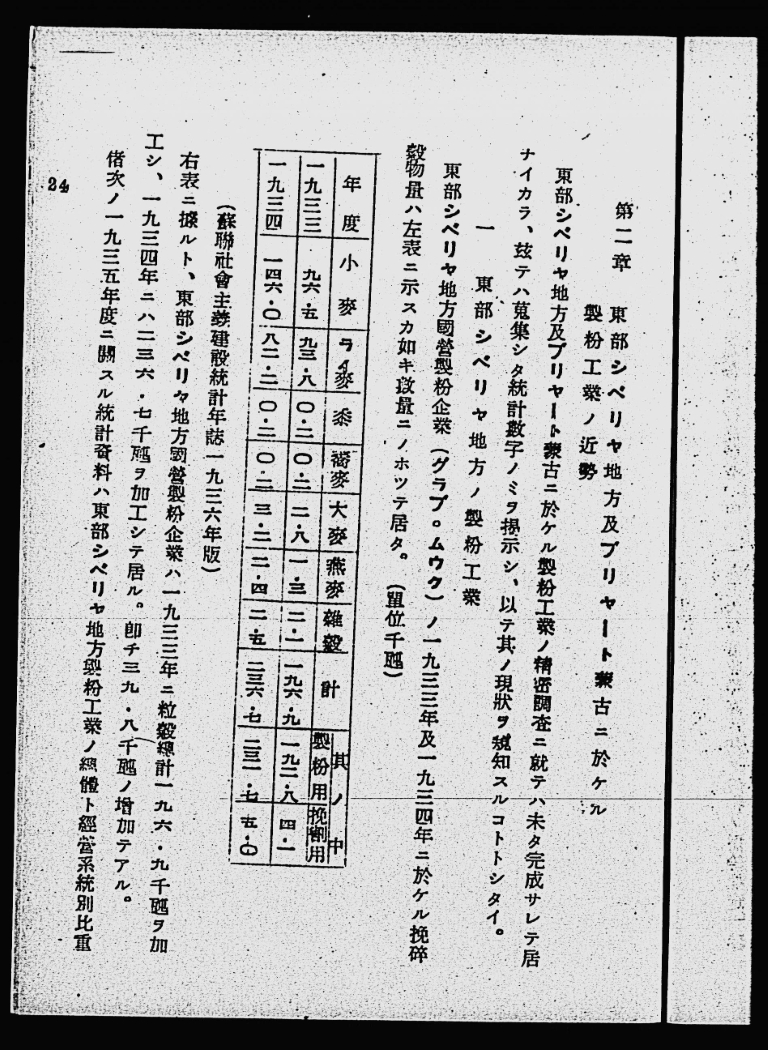 第二章 東部シベリヤ地方及ブリヤート蒙古ニ於ケル
製粉工業ノ近勢
東部シベリヤ地方及ブリヤート蒙古ニ於ケル製粉工業ノ精密調査ニ就テハ未タ完成サレテ居
ナイカラ、玆テハ蒐集シタ統計數字ノミヲ揭示シ、以テ其ノ現狀ヲ窺知スルコトトシタイ。
一 東部シベリヤ地方ノ製粉工業
東部シベリヤ地方國營製粉企業(グラブ。ムウク)ノ一九三三年及一九三四年ニ於ケル挽碎
穀物量ハ左表ニ示スカ如キ數量ニノホツテ居タ。(單位千瓲)
年度 小麥 ライ麥 黍 蕎麥 大麥 燕麥 雜穀 計 其ノ中 製粉用 挽割用
一九三三 九六・五 九三・八 〇・二 〇・二 二・八 一・三 二・一 一九六・九 一九二・八 四・一
一九三四 一四六・〇 八二・二 〇・二 〇・二 三・二 二・四 二・五 二三六・七 二三一・七 五・〇
(蘇聯社會主義建設統計年誌一九三六年版)
右表ニ據ルト、東部シベリヤ地方國營製粉企業ハ一九三三年ニ粒穀總計一九六・九千瓲ヲ加
工シ、一九三四年ニハ二三六・七千瓲ヲ加工シテ居ル。卽チ三九・八千瓲ノ增加テアル。
偖次ノ一九三五年度ニ關スル統計資料ハ東部シベリヤ地方製粉工業ノ總體ト經營系統別比重
24